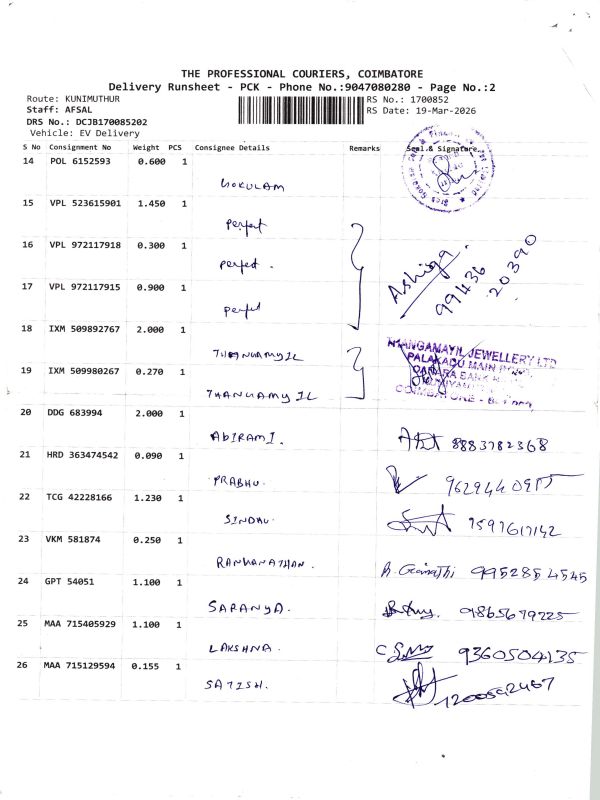 THE PROFESSIONAL COURIERS, COIMBATORE
Delivery Runsheet - PCK - Phone No.:9047080280 - Page No.:2
Route: KUNIMUTHUR
RS No.: 1700852
Staff: AFSAL
RS Date: 19-Mar-2026
DRS No.: DCJB170085202
Vehicle: EV Delivery
S No Consignment No Weight PCS Consignee Details Remarks Seal & Signature
14 POL 6152593 0.600 1
GOKULAM
15 VPL 523615901 1.450 1
Perfect
16 VPL 972117918 0.300 1
perfect.
Ashiga
99436
20390
17 VPL 972117915 0.900 1
perfect
18 IXM 509892767 2.000 1
THANGAMYIL
THANGAMAYIL JEWELLERY LTD
PALAKADU MAIN ROAD
CANARA BANK
COIMBATORE
19 IXM 509980267 0.270 1
THANGAMYIL
20 DDG 683994 2.000 1
ABIRAMI. 8883782368
21 HRD 363474542 0.090 1
PRABHU.
22 TCG 42228166 1.230 1
SINDHU. 7597617142
23 VKM 581874 0.250 1
RANGANATHAN. 9952854545
24 GPT 54051 1.100 1
SARANYA. 9865679225
25 MAA 715405929 1.100 1
LAKSHNA. 9360504135
26 MAA 715129594 0.155 1
SATISH.